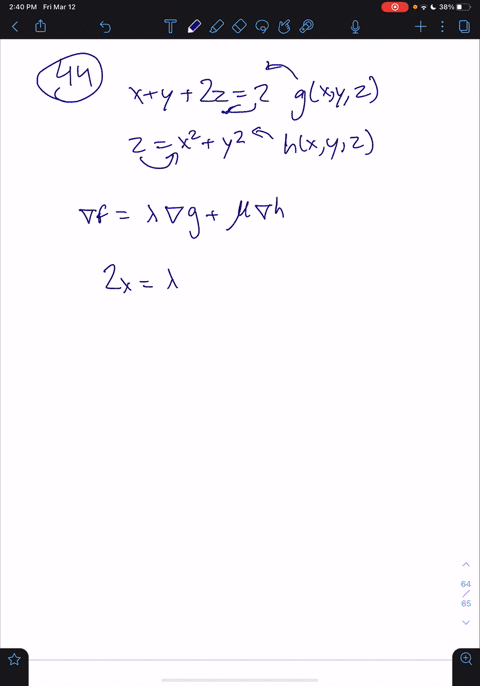 2:40 PM Fri Mar 12
38%
44
x+y+2z=2 g(x,y,z)
z=x²+y² h(x,y,z)
∇f = λ∇g + μ∇h
2x = λ
64
/
65